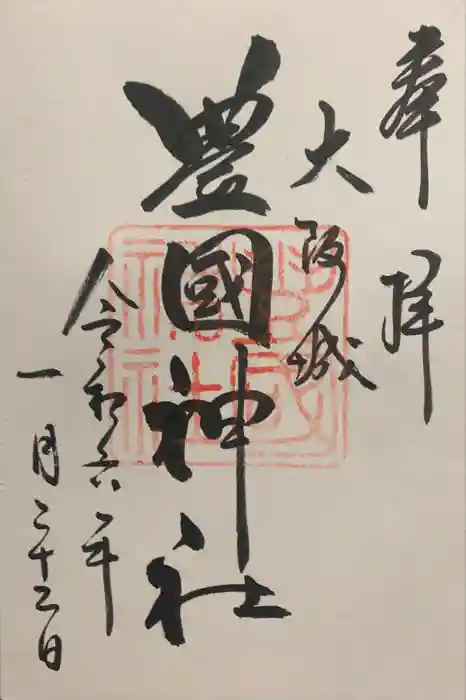 奉拝
大阪城
豊國神社
令和六年
一月二十二日
豊國神社